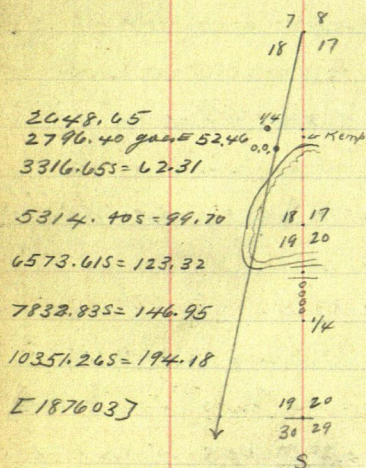 7 8
18 17
2648.65
1/4
2796.40 goes E 52.46
Kemp
0.0.
3316.65 S = 62.31
5314.40 S = 99.70
18 17
19 20
6573.61 S = 123.32
7832.83 S = 146.95
1/4
10351.26 S = 194.18
[187603]
19 20
30 29
S